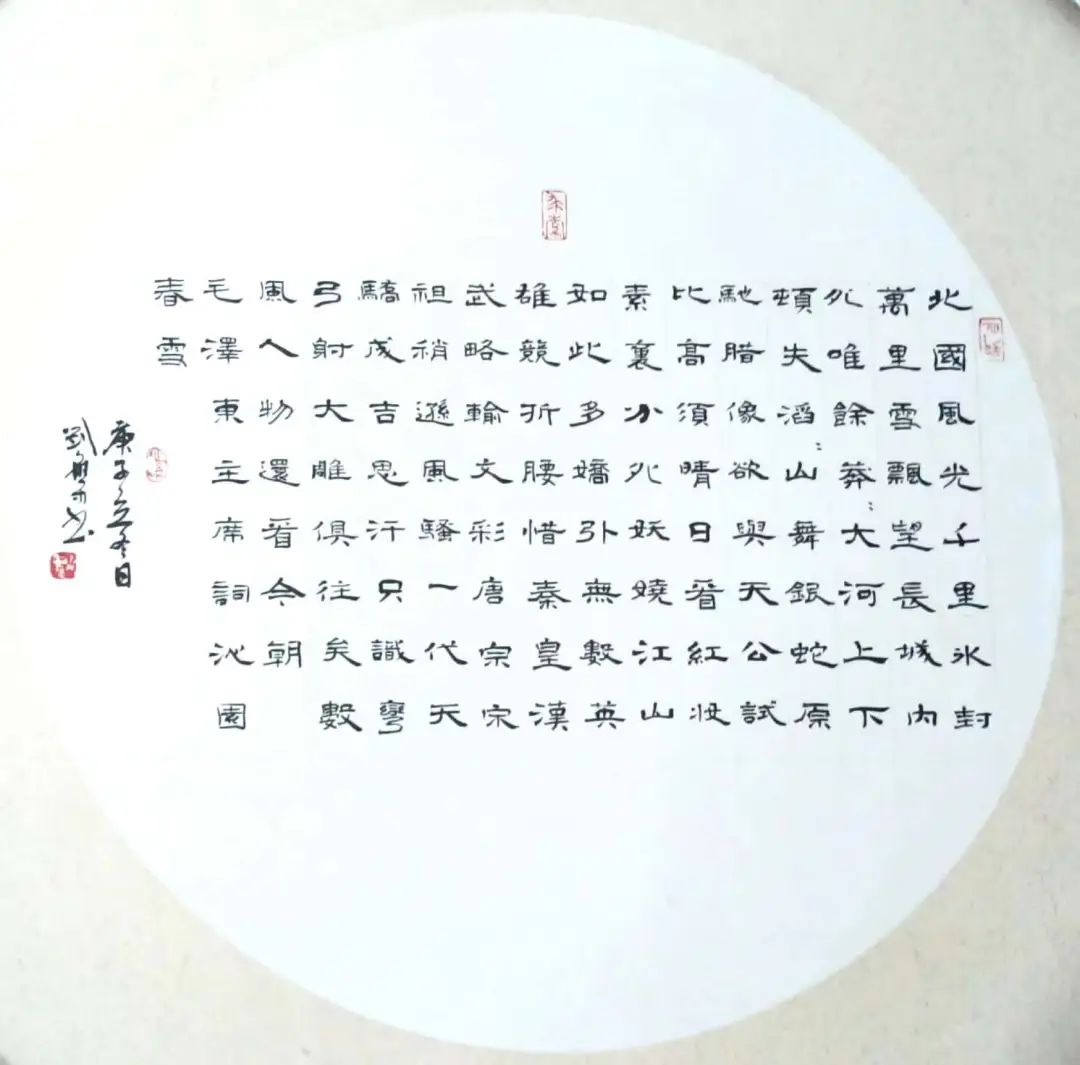 北國風光千里冰封
萬里雪飄望長城内
外唯餘莽:大河上下
頓失滔:山舞銀蛇原
馳腊像欲與天公試
比高須晴日看紅妝
素裹分外妖嬈江山
如此多嬌引無數英
雄競折腰惜秦皇漢
武略輸文彩唐宗宋
祖稍遜風騷一代天
驕成吉思汗只識彎
弓射大雕俱往矣數
風人物還看今朝
毛澤東主席詞沁園
春雪
庚子立冬日
劉書